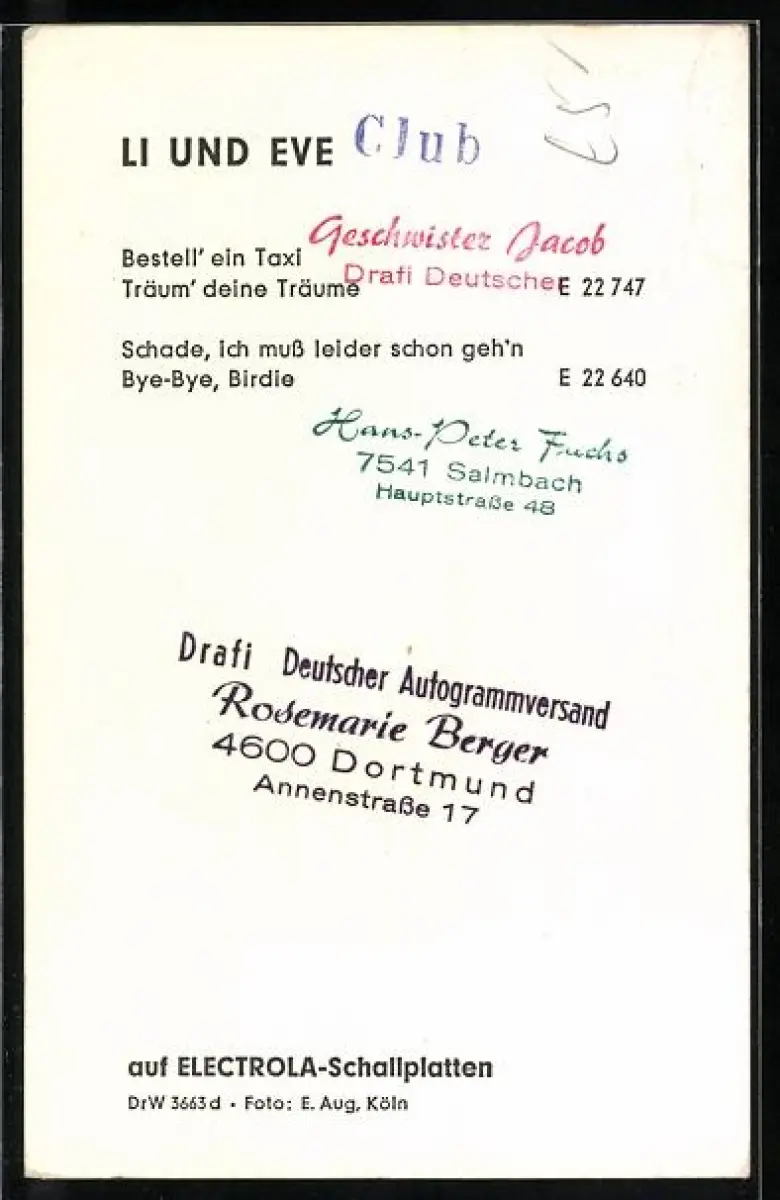 LI UND EVE Club
Geschwister Jacob
Bestell' ein Taxi
Drafi Deutscher
Träum' deine Träume E 22 747
Schade, ich muß leider schon geh'n
Bye-Bye, Birdie E 22 640
Hans-Peter Fuchs
7541 Salmbach
Hauptstraße 48
Drafi Deutscher Autogrammversand
Rosemarie Berger
4600 Dortmund
Annenstraße 17
auf ELECTROLA-Schallplatten
DrW 3663 d · Foto: E. Aug, Köln